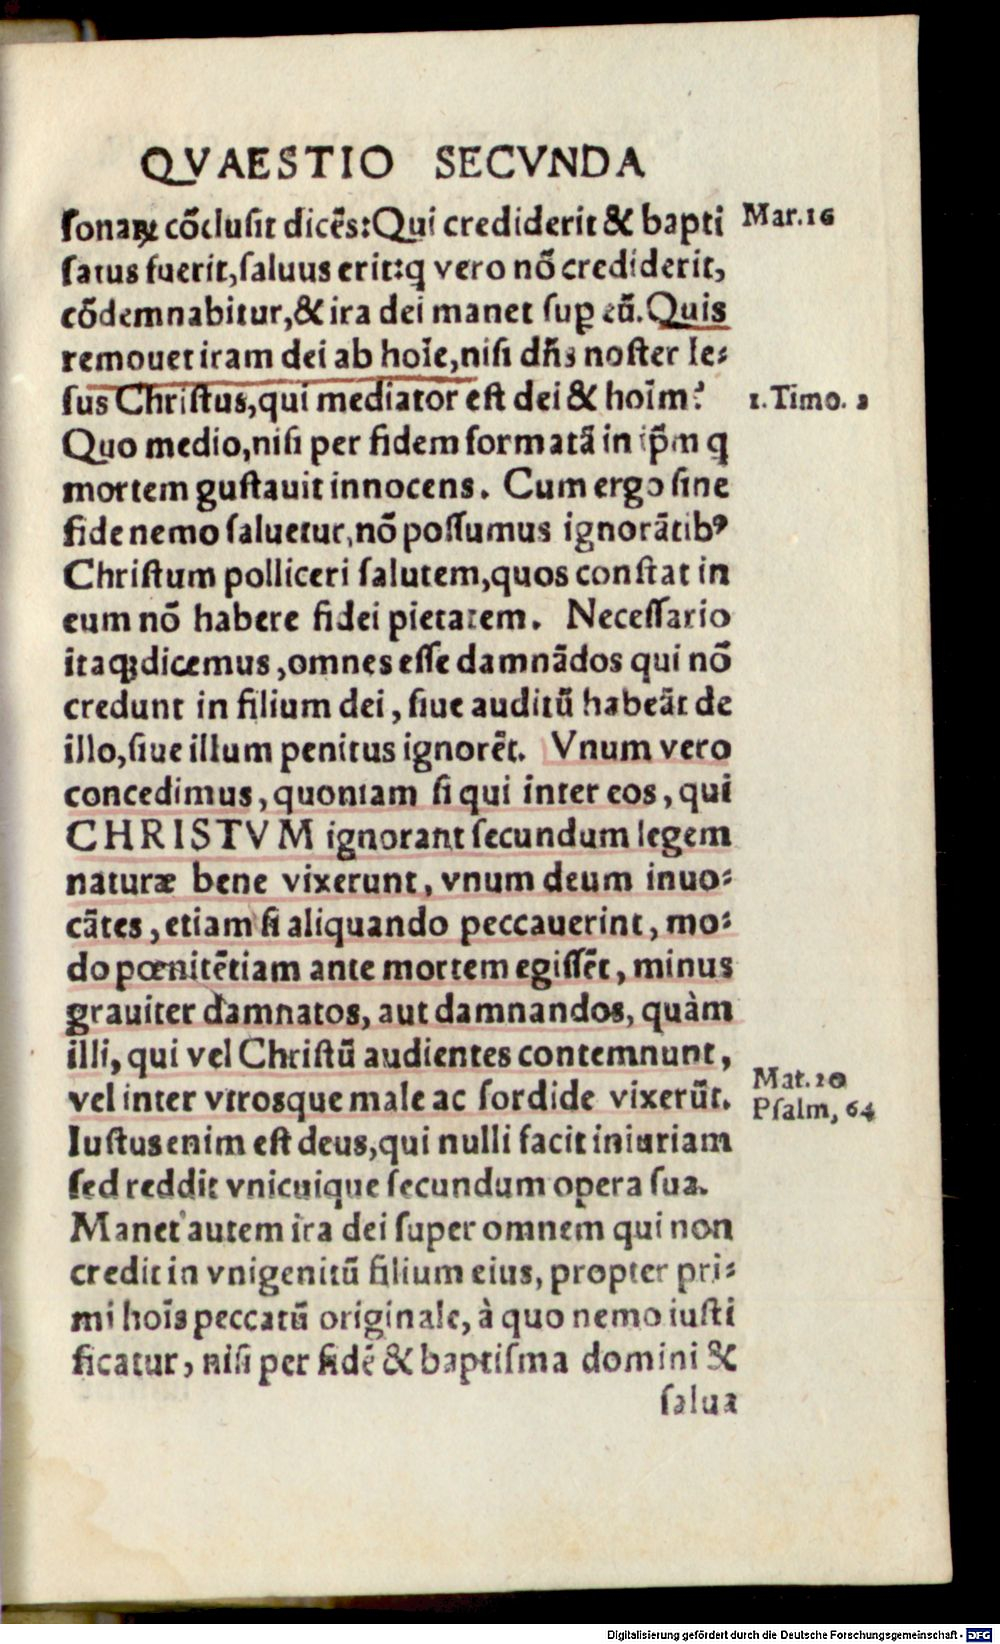 QVAESTIO SECVNDA
ſonaꝝ cõcluſit dicẽs: Qui crediderit & bapti
Mar. 16
ſatus fuerit, ſaluus erit: q̃ vero nõ crediderit,
cõdemnabitur, & ira dei manet ſuꝑ eũ. Quis
remouet iram dei ab hoĩe, niſi dñs noſter Ie⸗
ſus Chriſtus, qui mediator eſt dei & hoĩm?
1. Timo. 2
Quo medio, niſi per fidem formatã in ip̃m q̃
mortem guſtauit innocens. Cum ergo ſine
fide nemo ſaluetur, nõ poſſumus ignorãtibꝰ
Chriſtum polliceri ſalutem, quos conſtat in
eum nõ habere fidei pietatem. Neceſſario
itaqꝫ dicemus, omnes eſſe damnãdos qui nõ
credunt in filium dei, ſiue auditũ habeãt de
illo, ſiue illum penitus ignorẽt. Vnum vero
concedimus, quoniam ſi qui inter eos, qui
CHRISTVM ignorant ſecundum legem
naturæ bene vixerunt, vnum deum inuo⸗
cãtes, etiam ſi aliquando peccauerint, mo⸗
do pœnitẽtiam ante mortem egiſſẽt, minus
grauiter damnatos, aut damnandos, quàm
illi, qui vel Chriſtũ audientes contemnunt,
vel inter vtroſque male ac ſordide vixerũt.
Mat. 20
Pſalm, 64
Iuſtus enim eſt deus, qui nulli facit iniuriam
ſed reddit vnicuique ſecundum opera ſua.
Manet autem ira dei ſuper omnem qui non
credit in vnigenitũ filium eius, propter pri⸗
mi hoĩs peccatũ originale, à quo nemo iuſti
ficatur, niſi per fidẽ & baptiſma domini &
ſalua
Digitalisierung gefördert durch die Deutsche Forschungsgemeinschaft - DFG